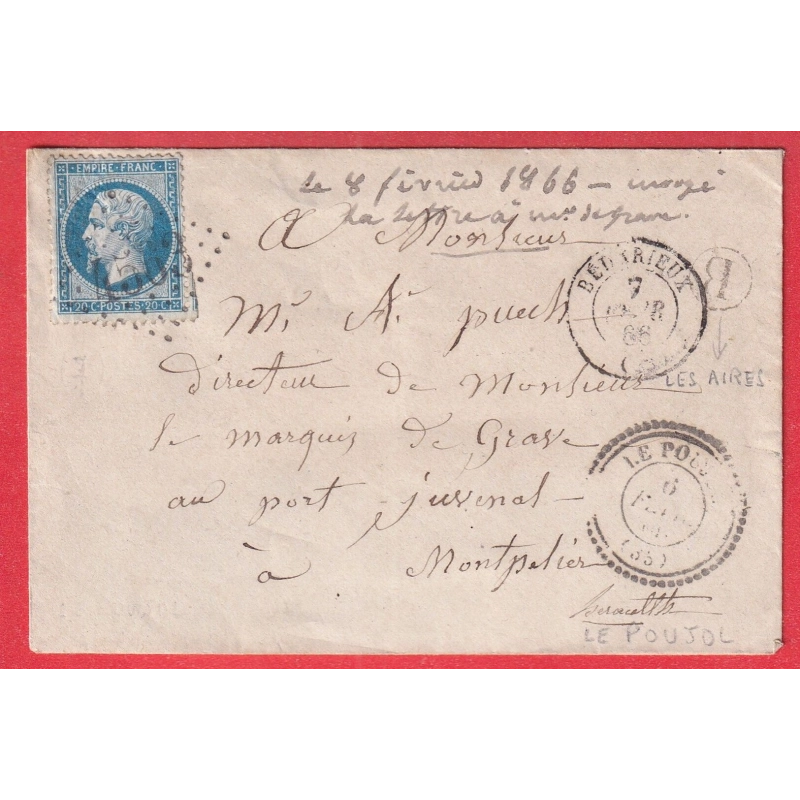 EMPIRE · FRANC ·
20 C · POSTES · 20 C
le 8 février 1866 – envoyé
la lettre à mr. de
A Monsieur
BÉDARIEUX
7
FEVR
66
B
LES AIRES
Mr. A. puech
directeur de Monsieur
le marquis de Grave
au port juvenal
à Montpelier
LE POUJ
6
(33)
herault
LE POUJOL